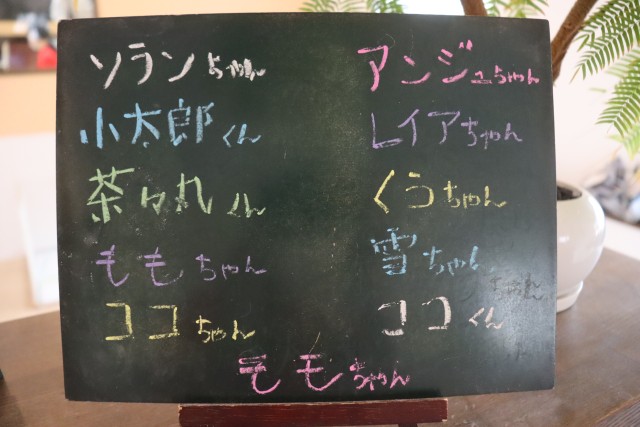 ソランちゃん
小太郎くん
茶々丸くん
ももちゃん
ココちゃん
アンジュちゃん
レイアちゃん
くうちゃん
雪ちゃん
ココくん
モモちゃん